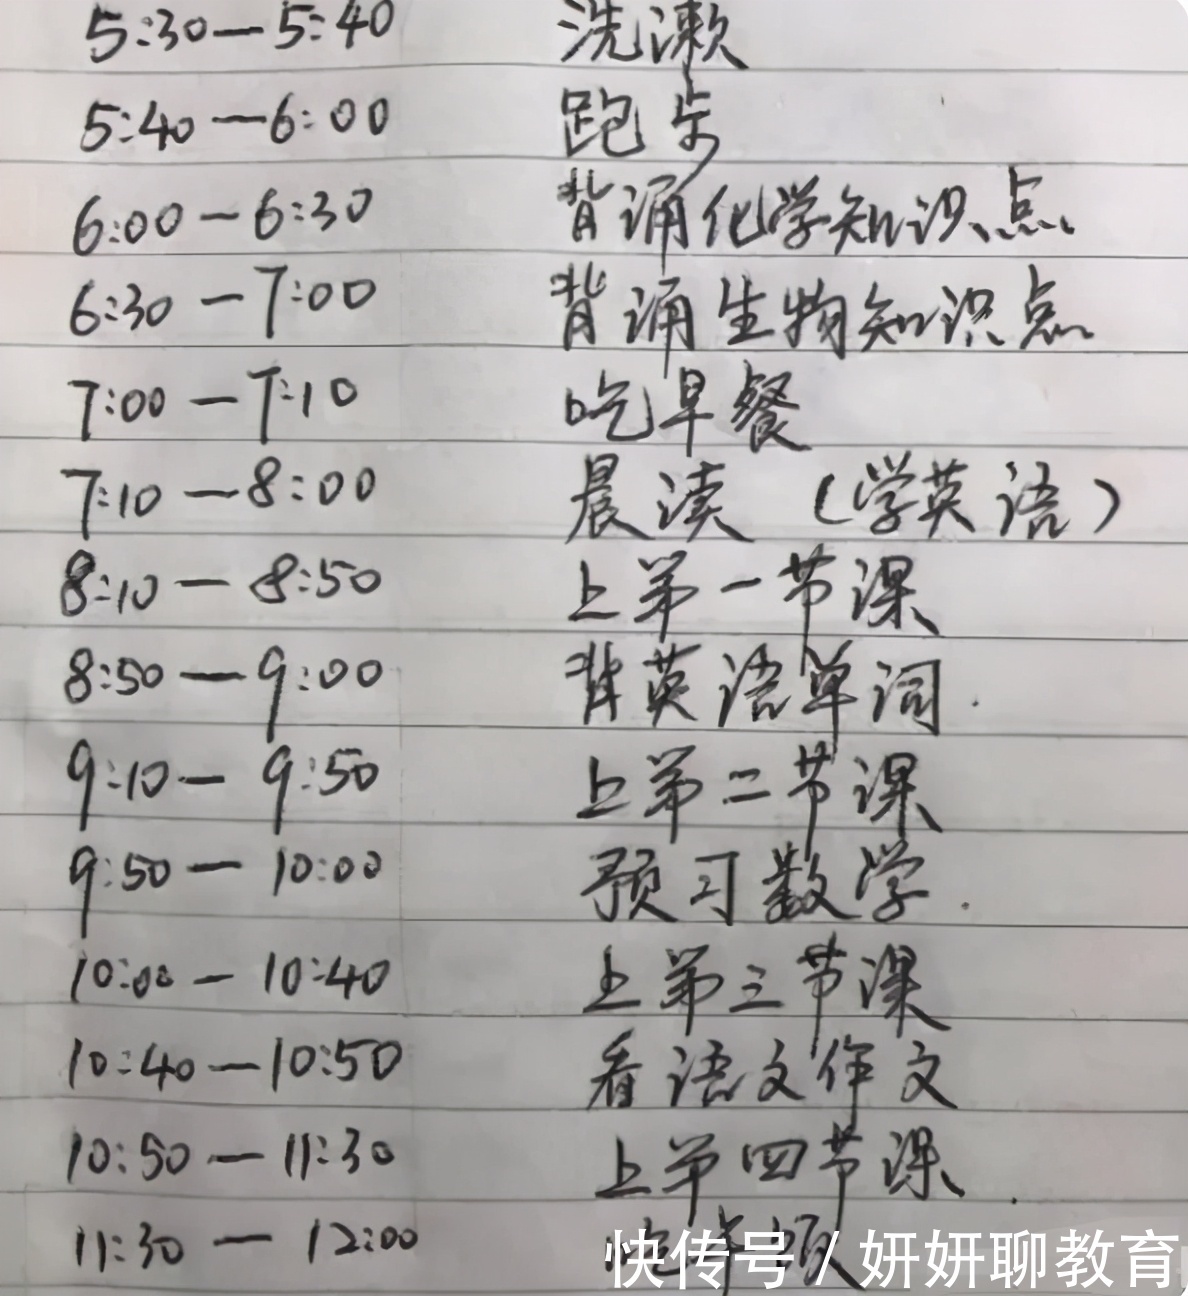 5:30—5:40 洗漱
5:40—6:00 跑步
6:00—6:30 背诵化学知识点
6:30—7:00 背诵生物知识点
7:00—7:10 吃早餐
7:10—8:00 晨读（学英语）
8:10—8:50 上第一节课
8:50—9:00 背英语单词.
9:10—9:50 上第二节课
9:50—10:00 预习数学.
10:00—10:40 上第三节课
10:40—10:50 看语文作文
10:50—11:30 上第四节课.
11:30—12:00
快传号/妍妍聊教育